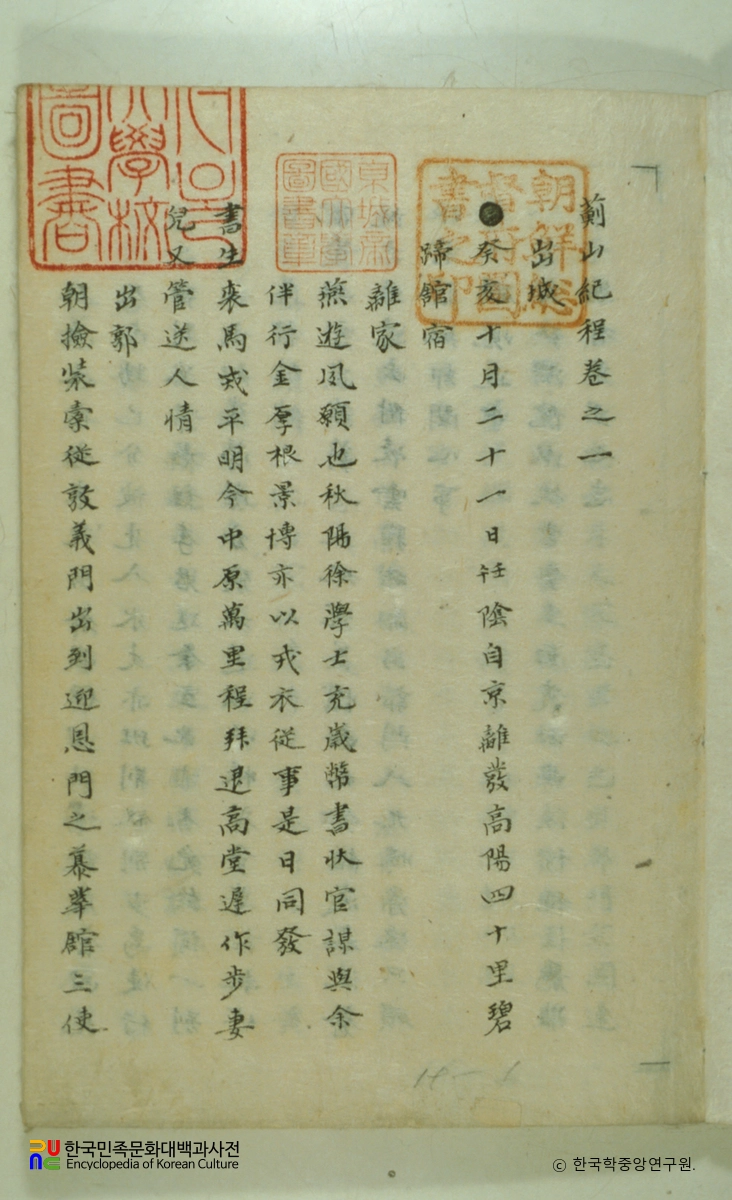 薊山紀程卷之一
出城
癸亥十月二十一日壬陰自京離發高陽四十里碧
蹄館宿
離家
燕遊風願也秋陽徐學士充歲幣書狀官謀與余
伴行金厚根景博亦以戎衣從事是日同發
書生裘馬戎平明今中原萬里程拜退高堂遲作步妻
兒又管送人情
出郭
朝撿柴索從敦義門出到迎恩門之慕華館三使
朝鮮總
督府圖
書之印
東城
國
圖書章
大學校
圖書
한국민족문화대백과사전
Encyclopedia of Korean Culture
ⓒ 한국학중앙연구원.